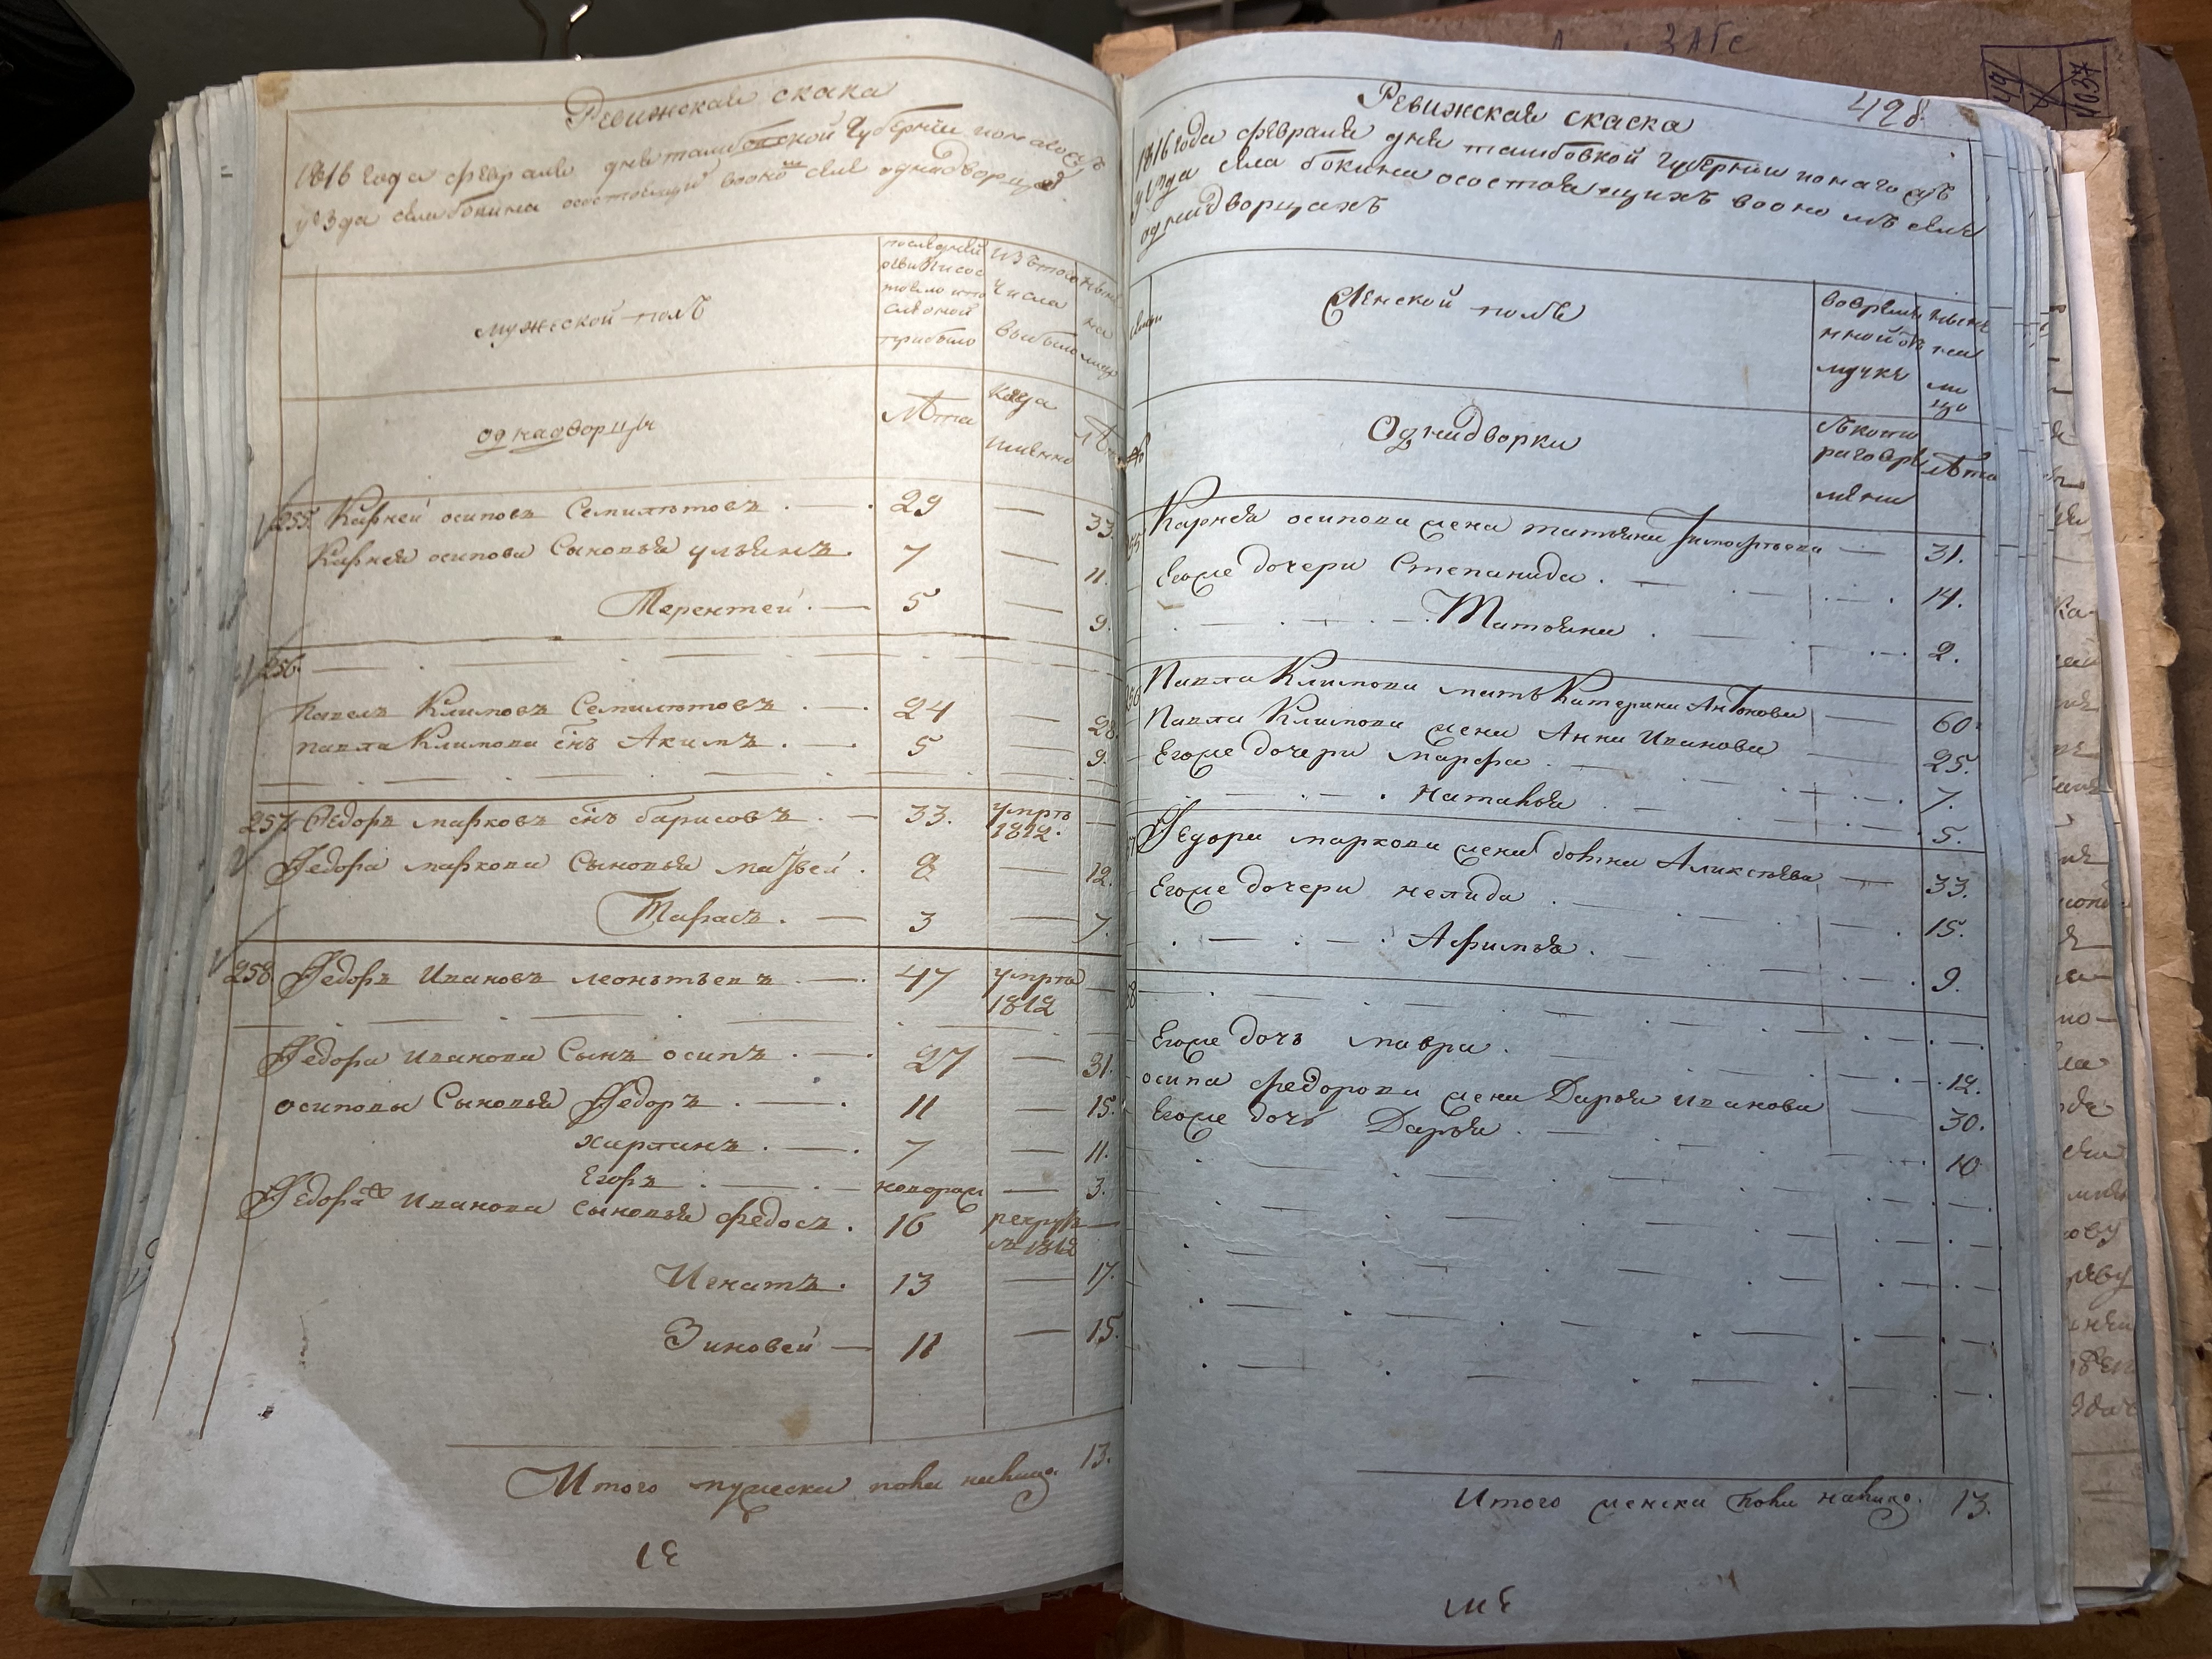 Ревижская скаска
1816 года февраля дня тамбовской губернии
уезда села бокина осостоящих во оно м селе однадворцах
мужеской полъ
последней ревизи состояло и после оной прибыло
изъ того числа выбыло
ныне на лицо
однадворцы
Лѣта
когда имянно
Лѣта
255. Карней осиповъ Семилѣтовъ . — . 29 — 33.
Карнея осипова Сыновья ульянъ . 7 — 11.
Терентей . — 5 — 9.
256.
Павелъ Климовъ Семилѣтовъ . — . 24 — 28.
павла Климова снъ Акимъ . — . 5 — 9.
257. Федоръ марковъ снъ барисовъ . — 33. умртъ 1812. —
Федора маркова Сыновья матвей . 8 — 12.
Тарасъ . — 3 — 7.
258. Федоръ Ивановъ леонтьевъ . — . 47 умрта 1812 —
Федора Иванова Сынъ осипъ . — . 27 — 31.
осиповы Сыновья Федоръ . — . 11 — 15.
харланъ . — . 7 — 11.
Егоръ . — новораж — 3.
Федора Иванова сыновья федосъ . 16 рекрутъ 1812 —
Игнатъ . 13 — 17.
Зиновей — 11 — 15.
Итого мужеска пола налицо. 13.
498.
Ревижская скаска
1816 года февраля дня тамбовкой губернии
уезда села бокина осостоящихъ во оно мъ селе
однадворцахъ
семьи
Женской полъ
вовременной отлучке
ныне на лицо
Однадворки
съкотораго времени
Лѣта
Карнея осипова жена татьяна Тимофѣева — 31.
Егоже дочери Степанида . — 14.
Татьяна . — 2.
Павла Климова мать Катерина Антонова — 60.
Павла Климова жена Анна Иванова — 25.
Егоже дочери марфа . — 7.
Наталья . — 5.
Федора маркова жена Аликсѣева — 33.
Егоже дочери нелида . — 15.
Афимья . — 9.
Егоже дочь мавра . — 12.
осипа федорова жена Дарья иванова — 30.
Егоже дочь Дарья . — 10
Итого женска пола налицо. 13.